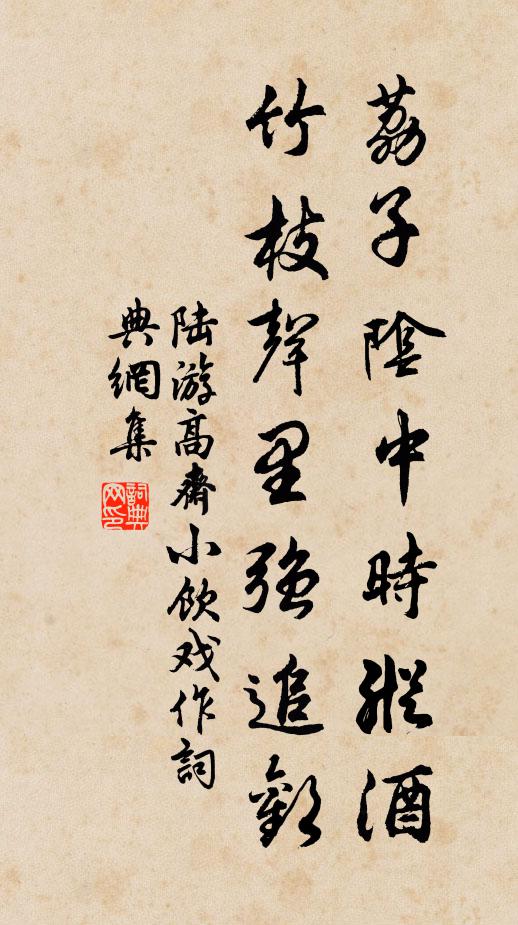 荔子陰中時縱酒
竹枝聲里強追歡
陆游高齋小饮戏作詞
典網集
詞典网印